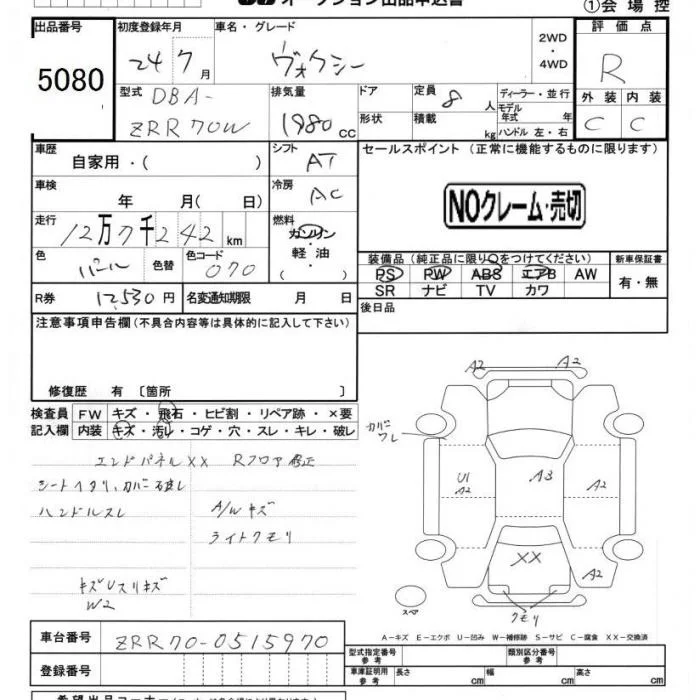 オークション出品申込書 ①会場控
出品番号 初度登録年月 車名・グレード 2WD・4WD 評価点
5080 24 7月 ヴォクシー R
型式 DBA-ZRR70W 排気量 1980cc ドア 形状 定員 8人 積載 kg ディーラー・並行 モデル年式 年 ハンドル 左・右 外装 内装
C C
車歴 自家用・( ) シフト AT セールスポイント(正常に機能するものに限ります)
車検 年 月( 日) 冷房 AC NOクレーム・売切
走行 12万7千242km 燃料 ガソリン 軽油 ( )
色 パール 色替 色コード 070 装備品(純正品に限り○をつけてください) 新車保証書
PS PW ABS エアB AW 有・無
SR ナビ TV カワ
R券 12,530円 名変通知期限 月 日 後日品
注意事項申告欄(不具合内容等は具体的に記入して下さい)
修復歴 有〔箇所 〕
検査員 FW キズ・飛石・ヒビ割・リペア跡・×要
記入欄 内装 キズ・汚レ・コゲ・穴・スレ・キレ・破レ
エンドパネルXX Rフロア修正
シートヘタリ、カバー破レ
ハンドルスレ A/Wキズ
ライトクモリ
キズUスリキズ
W2
A2 A2
カバー
ワレ
U1
A2 A3 A2
XX
A2
スペア クモリ
A-キズ E-エクボ U-凹み W-補修跡 S-サビ C-腐食 XX-交換済
車台番号 ZRR70-0515970 型式指定番号 参考 類別区分番号 参考
登録番号 車庫証明用 参考 長さ cm 幅 cm 高さ cm